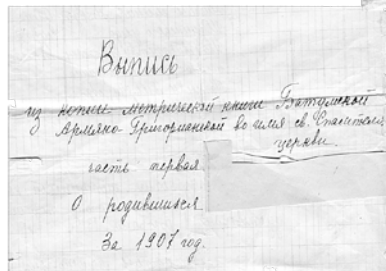 Выпись
из копии метрической книги Батумской
Армяно-Григорианской во имя св. Спасителя
церкви.
часть первая
О родившихся
За 1907 год.